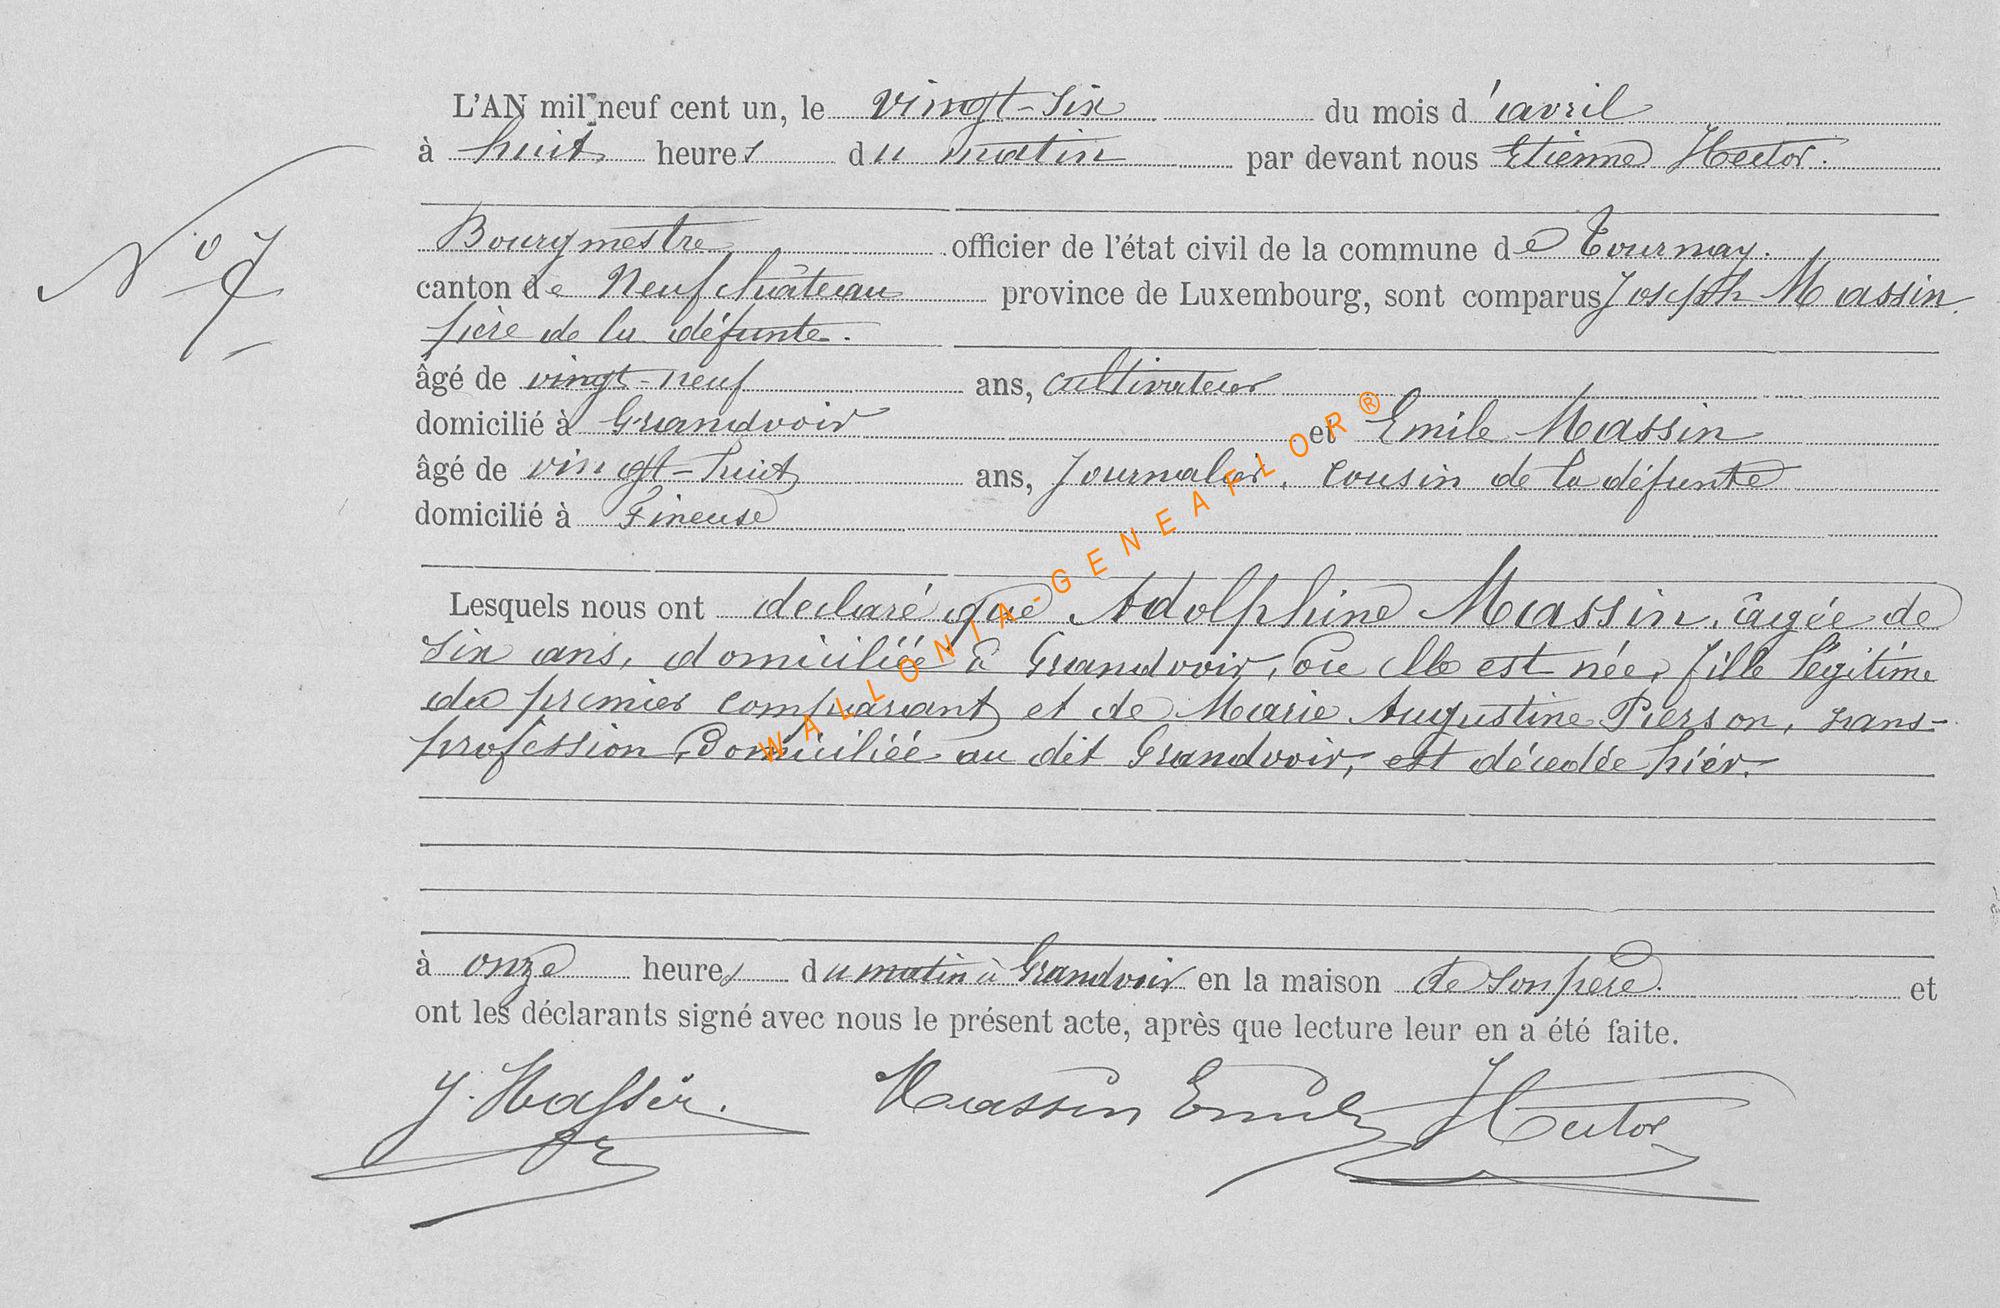 L'AN mil neuf cent un, le vingt-six du mois d'avril
à huit heures du matin par devant nous Etienne Hector.
N° 7
Bourgmestre officier de l'état civil de la commune de Tournay.
canton de Neufchâteau province de Luxembourg, sont comparus Joseph Massin
père de la défunte.
âgé de vingt-neuf ans, cultivateur
domicilié à Grandvoir et Emile Massin
âgé de vingt-huit ans, Journalier, cousin de la défunte
domicilié à Fineuse
Lesquels nous ont declaré que Adolphine Massin, âgée de
six ans, domiciliée à Grandvoir, où elle est née, fille légitime
du premier comparant et de Marie Augustine Pierson, sans
profession, Domiciliée au dit Grandvoir, est décédée hier.
à onze heures du matin à Grandvoir en la maison de son père. et
ont les déclarants signé avec nous le présent acte, après que lecture leur en a été faite.
J. Massin. Massin Emile Hector
WALLONIA-GENEAFLOR®